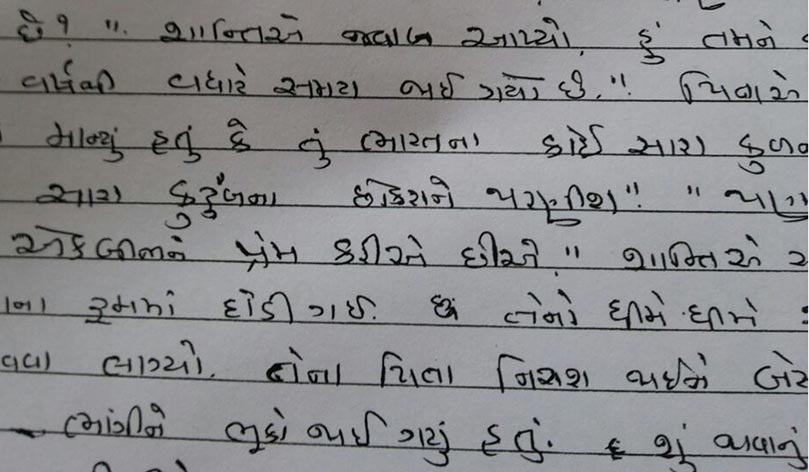 છે? ". શાન્તિએ જવાબ આપ્યો, હું તમને
વર્ષથી વધારે સમય થઈ ગયો છે." પિતાએ
માન્યું હતું કે તું ભારતના કોઈ સારા કુળ
સારા કુટુંબના છોકરાને પરણીશ" "પણ
એકબીજાને પ્રેમ કરીએ છીએ" શાન્તિએ
ના રૂમમાં દોડી ગઈ. તેનો ધીમે ધીમે
વવા લાગ્યો. તેના પિતા નિરાશ થઈને બેટ
ભાંગીને ભૂકો થઈ ગયું હતું. શું થવાનું